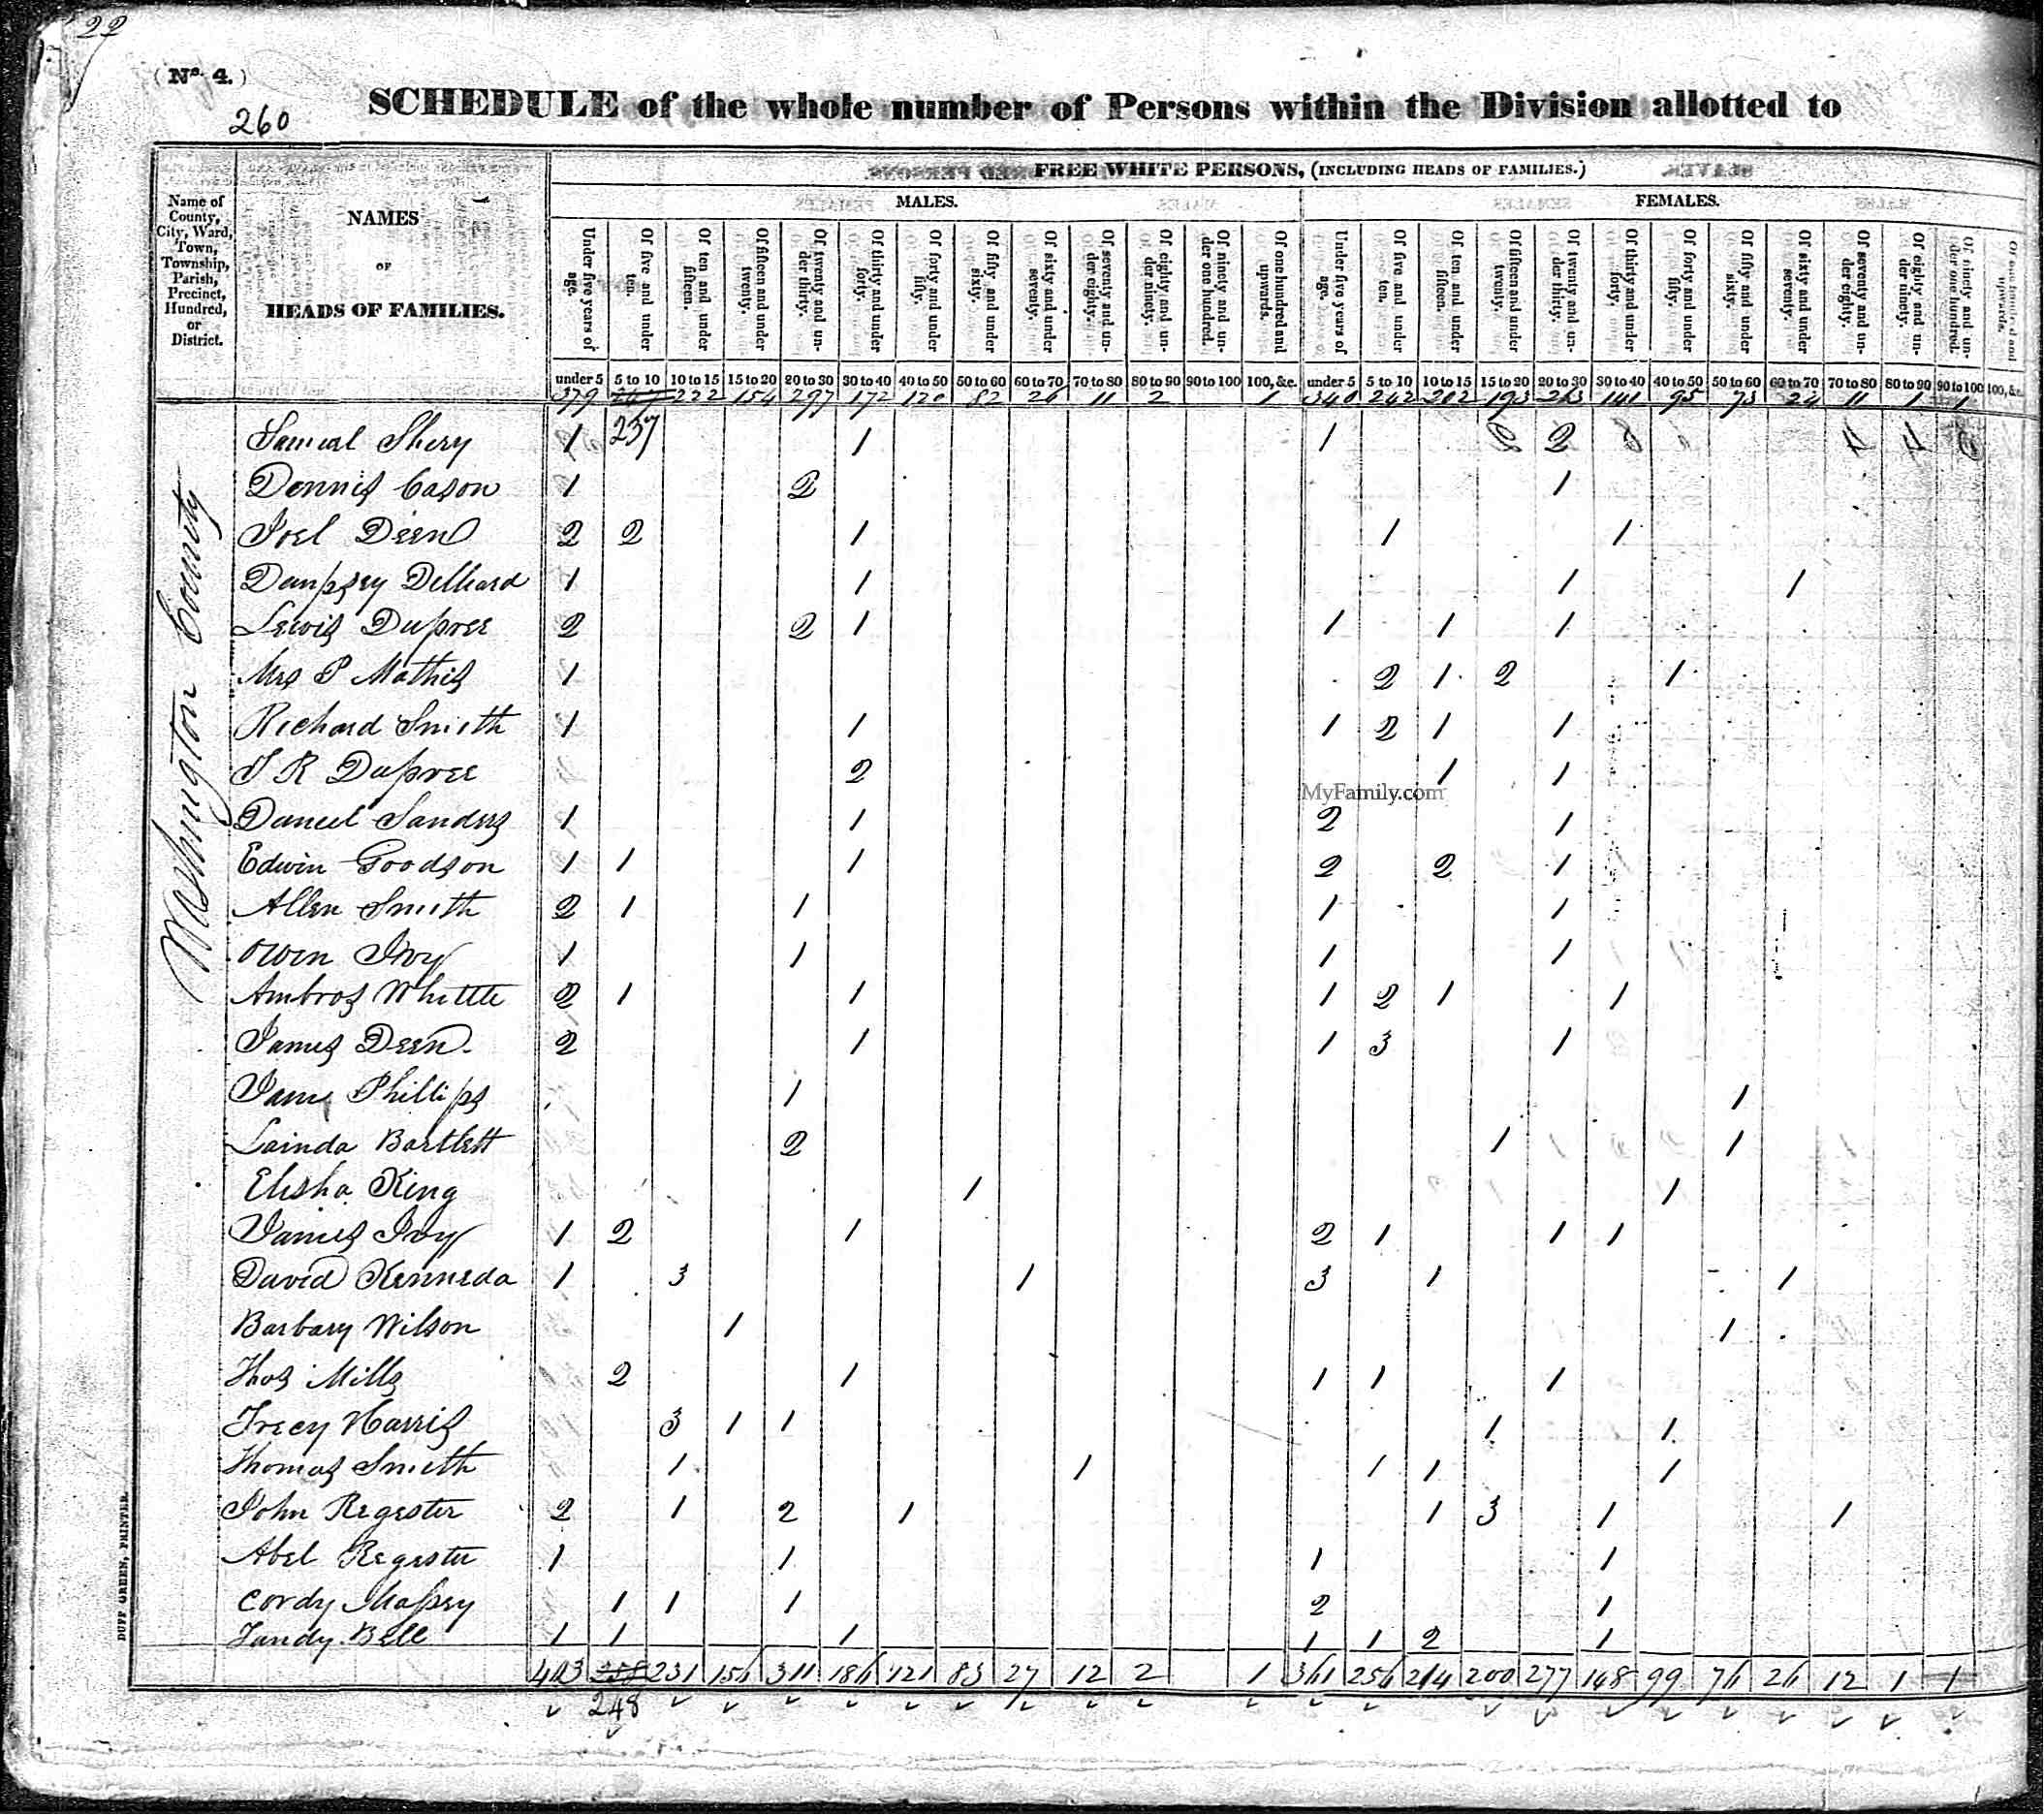 22
(No. 4.)
260
SCHEDULE of the whole number of Persons within the Division allotted to
FREE WHITE PERSONS, (INCLUDING HEADS OF FAMILIES.)
MALES. FEMALES.
Name of County, City, Ward, Town, Township, Parish, Precinct, Hundred, or District.
NAMES
OF
HEADS OF FAMILIES.
Under five years of age. Of five and under ten. Of ten and under fifteen. Of fifteen and under twenty. Of twenty and under thirty. Of thirty and under forty. Of forty and under fifty. Of fifty and under sixty. Of sixty and under seventy. Of seventy and under eighty. Of eighty and under ninety. Of ninety and under one hundred. Of one hundred and upwards. Under five years of age. Of five and under ten. Of ten and under fifteen. Of fifteen and under twenty. Of twenty and under thirty. Of thirty and under forty. Of forty and under fifty. Of fifty and under sixty. Of sixty and under seventy. Of seventy and under eighty. Of eighty and under ninety. Of ninety and under one hundred. Of one hundred and upwards.
under 5 5 to 10 10 to 15 15 to 20 20 to 30 30 to 40 40 to 50 50 to 60 60 to 70 70 to 80 80 to 90 90 to 100 100, &c. under 5 5 to 10 10 to 15 15 to 20 20 to 30 30 to 40 40 to 50 50 to 60 60 to 70 70 to 80 80 to 90 90 to 100 100, &c.
379 222 154 297 172 120 82 26 11 2 1 340 242 202 193 263 141 95 73 24 11 1 1
237
Washington County
Samuel Shery 1 1 1 2
Dennis Cason 1 2 1
Joel Deen 2 2 1 1 1
Dempsey Delleard 1 1 1 1
Lewis Dupree 2 2 1 1 1 1
Mrs P Mathis 1 2 1 2 1
Richard Smith 1 1 1 2 1 1
J R Dupree 2 1 1
MyFamily.com
Daniel Sanders 1 1 2 1
Edwin Goodson 1 1 1 2 2 1
Allen Smith 2 1 1 1 1
Owen Ivy 1 1 1 1
Ambros Whittle 2 1 1 1 2 1 1
James Deen 2 1 1 3 1
Jame Phillips 1 1
Lainda Bartlett 2 1 1
Elisha King 1 1
James Ivy 1 2 1 2 1 1 1
David Kenneda 1 3 1 3 1 1
Barbary Wilson 1 1
Thos Mills 2 1 1 1 1
Trecy Harris 3 1 1 1 1
Thomas Smith 1 1 1 1 1
John Regester 2 1 2 1 1 3 1 1
Abel Regester 1 1 1 1
Cordy Massey 1 1 1 2 1
Tandy Bell 1 1 1 1 1 2 1
403 258 231 156 311 186 121 83 27 12 2 1 361 256 214 200 277 148 99 76 26 12 1 1
248
DUFF GREEN, PRINTER.